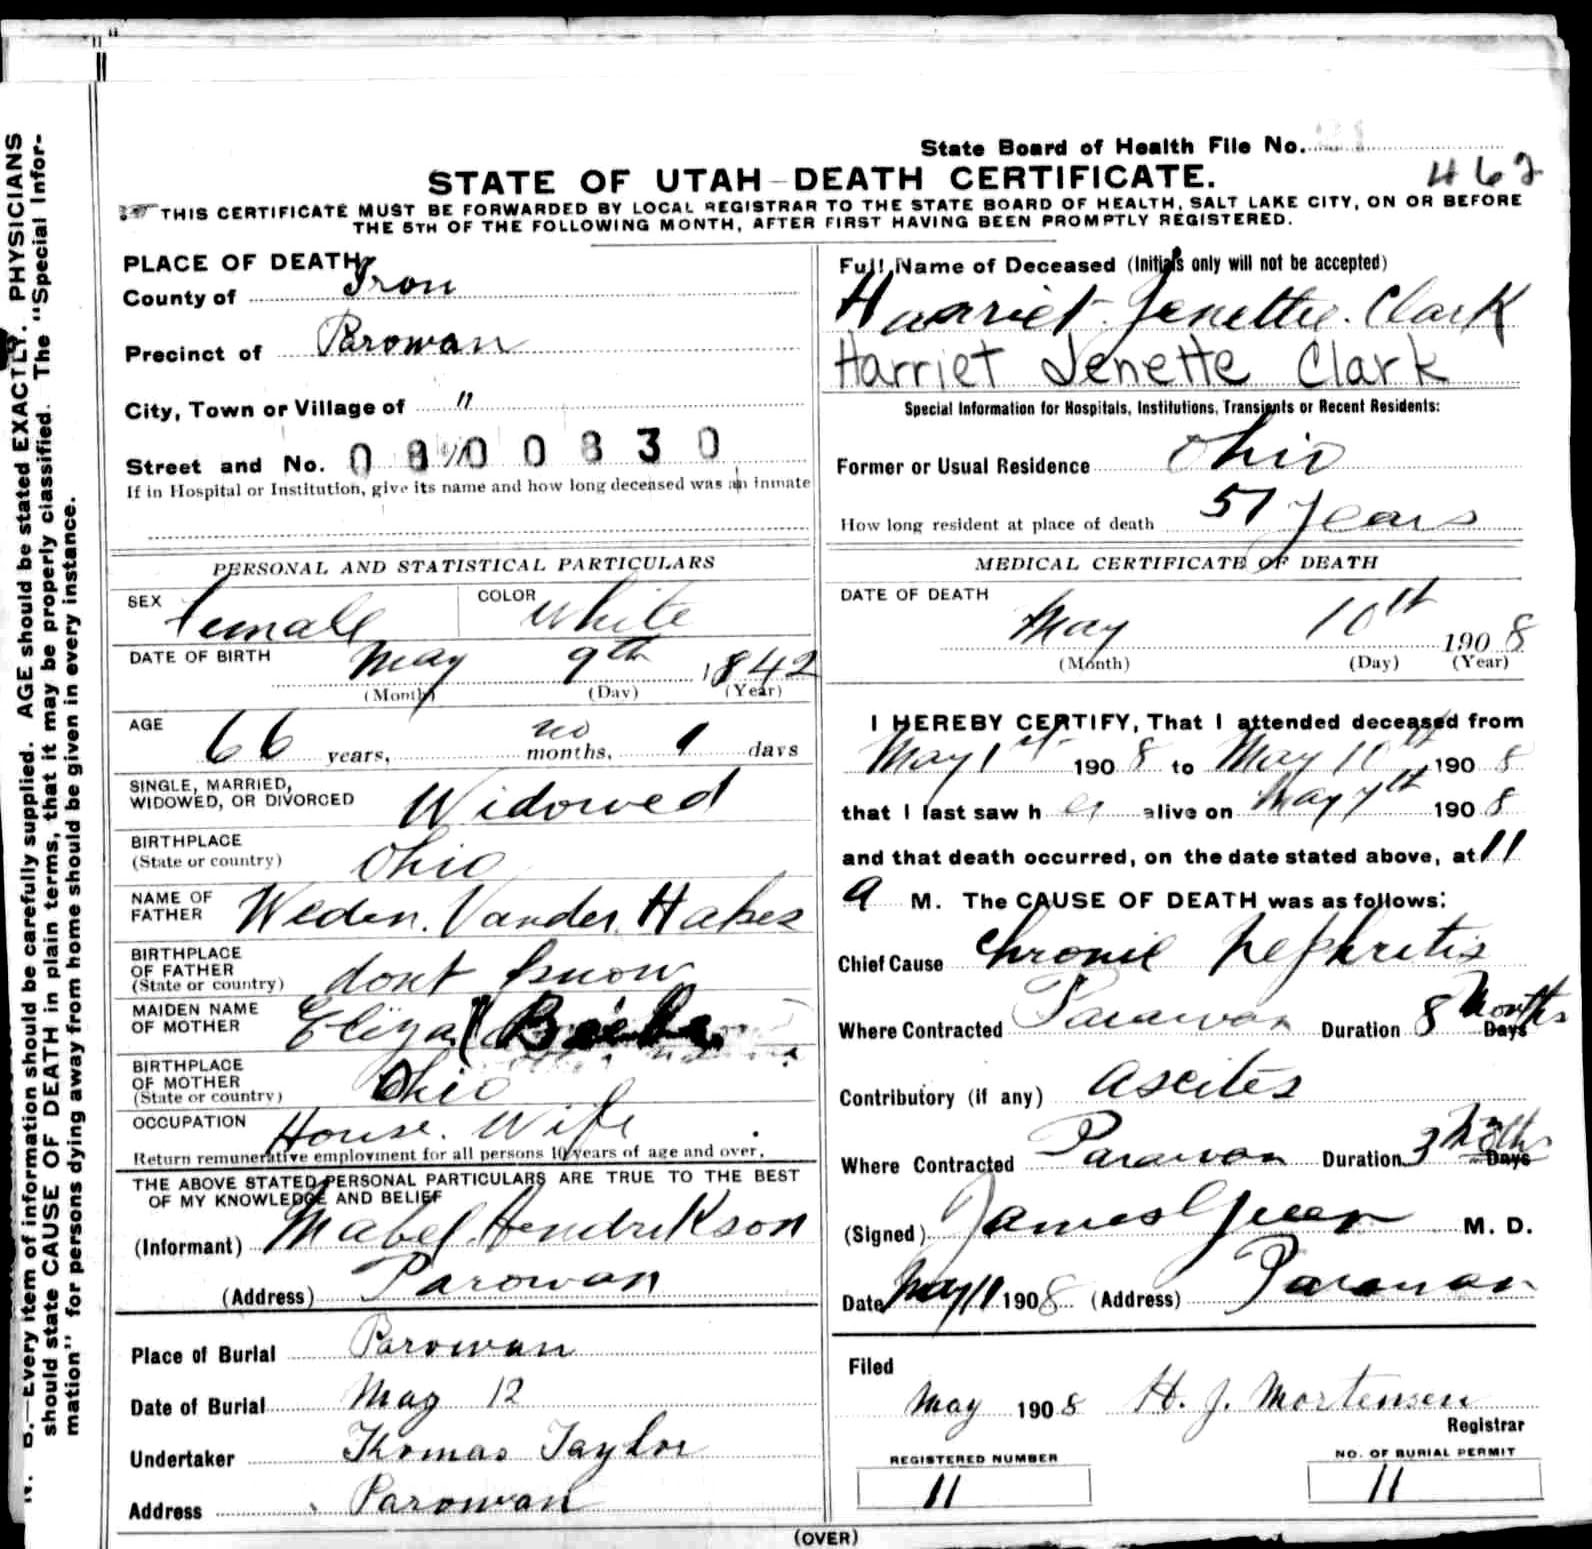 State Board of Health File No.
462
STATE OF UTAH-DEATH CERTIFICATE.
THIS CERTIFICATE MUST BE FORWARDED BY LOCAL REGISTRAR TO THE STATE BOARD OF HEALTH, SALT LAKE CITY, ON OR BEFORE
THE 5TH OF THE FOLLOWING MONTH, AFTER FIRST HAVING BEEN PROMPTLY REGISTERED.
PLACE OF DEATH
County of Iron
Precinct of Parowan
City, Town or Village of "
Street and No. 0 8 0 0 8 3 0
If in Hospital or Institution, give its name and how long deceased was an inmate
PERSONAL AND STATISTICAL PARTICULARS
SEX female COLOR White
DATE OF BIRTH May 9th 1842
(Month) (Day) (Year)
AGE 66 years, no months, 1 days
SINGLE, MARRIED,
WIDOWED, OR DIVORCED Widowed
BIRTHPLACE
(State or country) Ohio
NAME OF
FATHER Weden. Vander Hakes
BIRTHPLACE
OF FATHER
(State or country) dont know
MAIDEN NAME
OF MOTHER Eliza Beebe
BIRTHPLACE
OF MOTHER
(State or country) Ohio
OCCUPATION House. Wife
Return remunerative employment for all persons 10 years of age and over.
THE ABOVE STATED PERSONAL PARTICULARS ARE TRUE TO THE BEST
OF MY KNOWLEDGE AND BELIEF
(Informant) Mabel Hendrikson
(Address) Parowan
Place of Burial Parowan
Date of Burial May 12
Undertaker Thomas Taylor
Address Parowan
Full Name of Deceased (Initials only will not be accepted)
Harriet Jenette. Clark
Harriet Jenette Clark
Special Information for Hospitals, Institutions, Transients or Recent Residents:
Former or Usual Residence Ohio
How long resident at place of death 57 years
MEDICAL CERTIFICATE OF DEATH
DATE OF DEATH
May 10th 1908
(Month) (Day) (Year)
I HEREBY CERTIFY, That I attended deceased from
May 1st 1908 to May 10th 1908
that I last saw her alive on May 7th 1908
and that death occurred, on the date stated above, at 11
a M. The CAUSE OF DEATH was as follows:
Chief Cause Chronic Nephritis
Where Contracted Parowan Duration 8 Months Days
Contributory (if any) Ascites
Where Contracted Parowan Duration 3 Mths Days
(Signed) James Green M. D.
Date May 11 1908 (Address) Parowan
Filed
May 1908 H. J. Mortensen
Registrar
REGISTERED NUMBER
11
NO. OF BURIAL PERMIT
11
(OVER)
N. B.—Every item of information should be carefully supplied. AGE should be stated EXACTLY. PHYSICIANS
should state CAUSE OF DEATH in plain terms, that it may be properly classified. The "Special Infor-
mation" for persons dying away from home should be given in every instance.